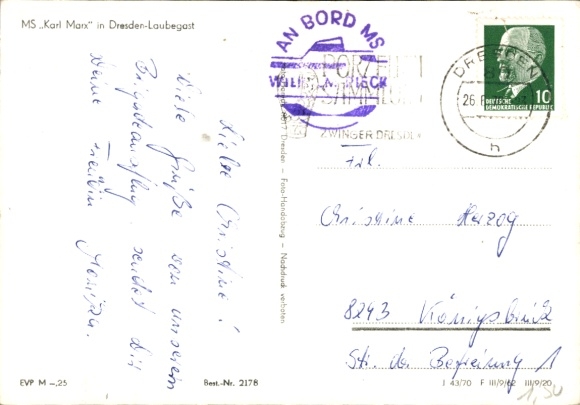 MS „Karl Marx" in Dresden-Laubegast
Liebe Christine!
Viele Grüße von unserem
Brigadeausflug sendet Dir
Deine Freundin Monika.
AN BORD MS
WILHELM PIECK
PORZELLAN
SAMMLUNG
ZWINGER DRESDEN
DRESDEN
26.
h
DEUTSCHE
DEMOKRATISCHE REPUBLIK
10
8017 Dresden – Foto-Handabzug – Nachdruck verboten
Frl.
Christine Herzog
8293 Königsbrück
Str. der Befreiung 1
EVP M –,25
Best.-Nr. 2178
J 43/70 F III/9/62 III/9/20
1,50